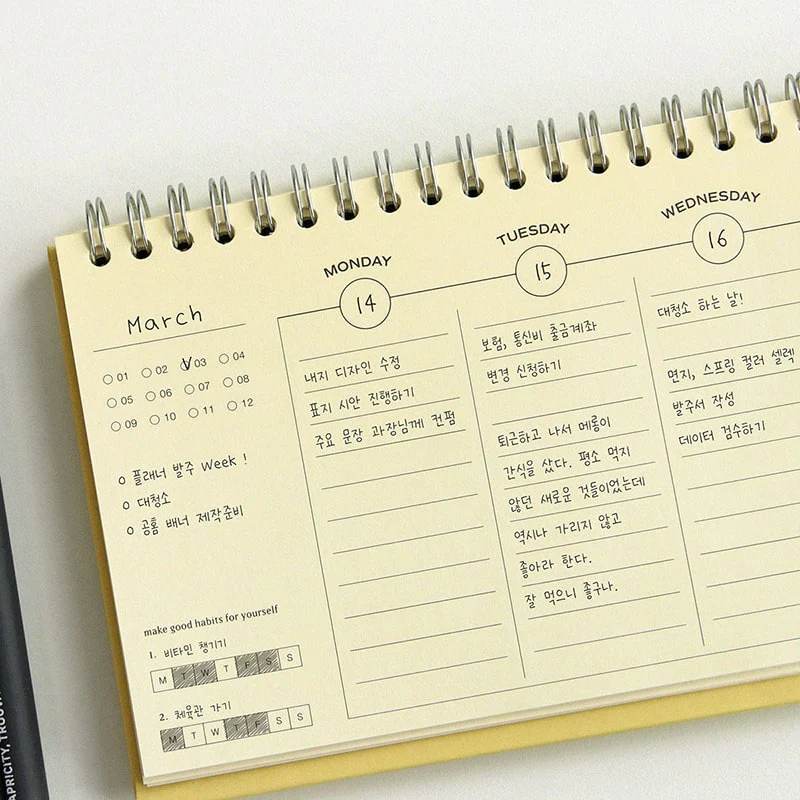 MONDAY
TUESDAY
WEDNESDAY
14
15
16
March
01 02 03 04
05 06 07 08
09 10 11 12
o 플래너 발주 Week !
o 대청소
o 공통 배너 제작준비
make good habits for yourself
1. 비타민 챙기기
M T W T F S S
2. 체육관 가기
M T W T F S S
내지 디자인 수정
표지 시안 진행하기
주요 문장 과장님께 컨펌
보험, 통신비 출금계좌
변경 신청하기
퇴근하고 나서 메롱이
간식을 샀다. 평소 먹지
않던 새로운 것들이었는데
역시나 가리지 않고
좋아라 한다.
잘 먹으니 좋구나.
대청소 하는 날!
면지, 스프링 컬러 셀렉
발주서 작성
데이터 검수하기
APRICITY,